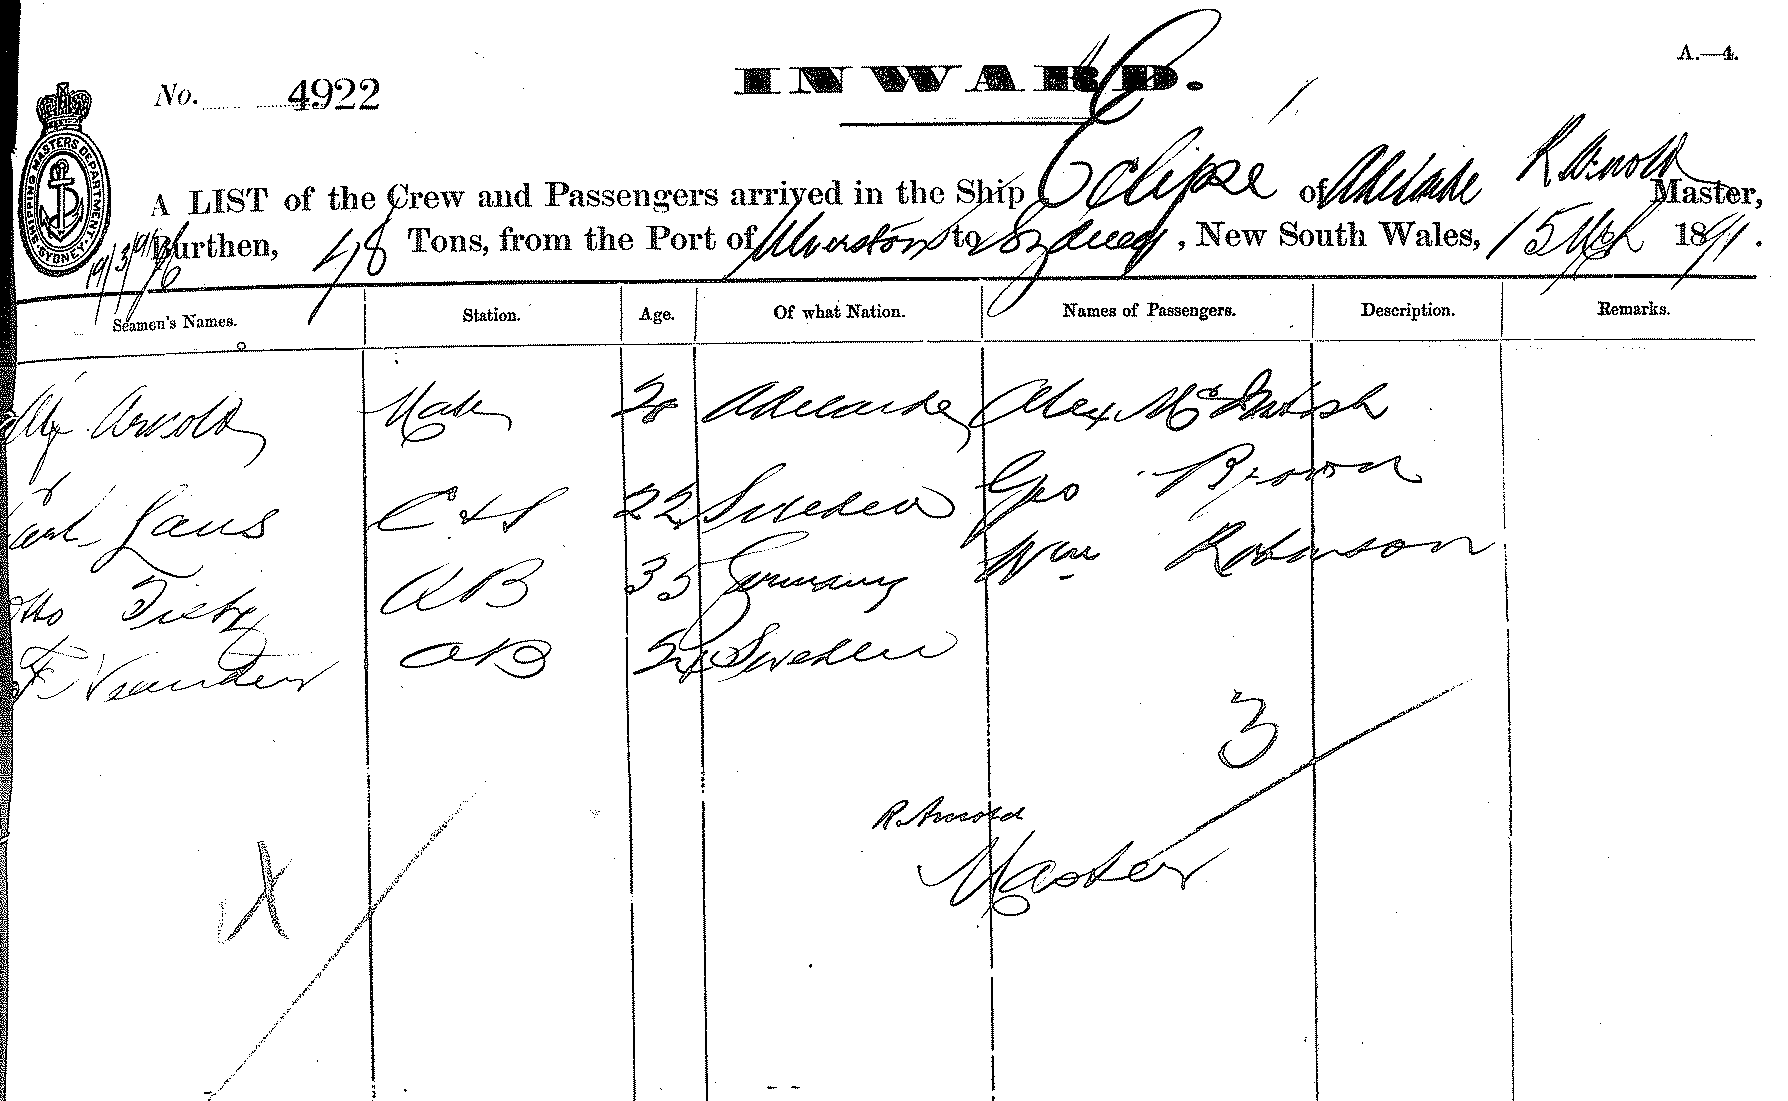 A.—4.
No. 4922
INWARD.
SHIPPING MASTERS DEPARTMENT. SYDNEY
A LIST of the Crew and Passengers arrived in the Ship Eclipse of Adelaide R Arnold Master,
Burthen, 48 Tons, from the Port of Ulverston to Sydney, New South Wales, 15 Mch 1891.
Seamen's Names. Station. Age. Of what Nation. Names of Passengers. Description. Remarks.
Arnold Mate 20 Adelaide Alex McIntosh
Laus C & S 22 Sweden Geo Brown
Otto AB 35 Germany Wm Robinson
F AB Sweden
3
R. Arnold
Master